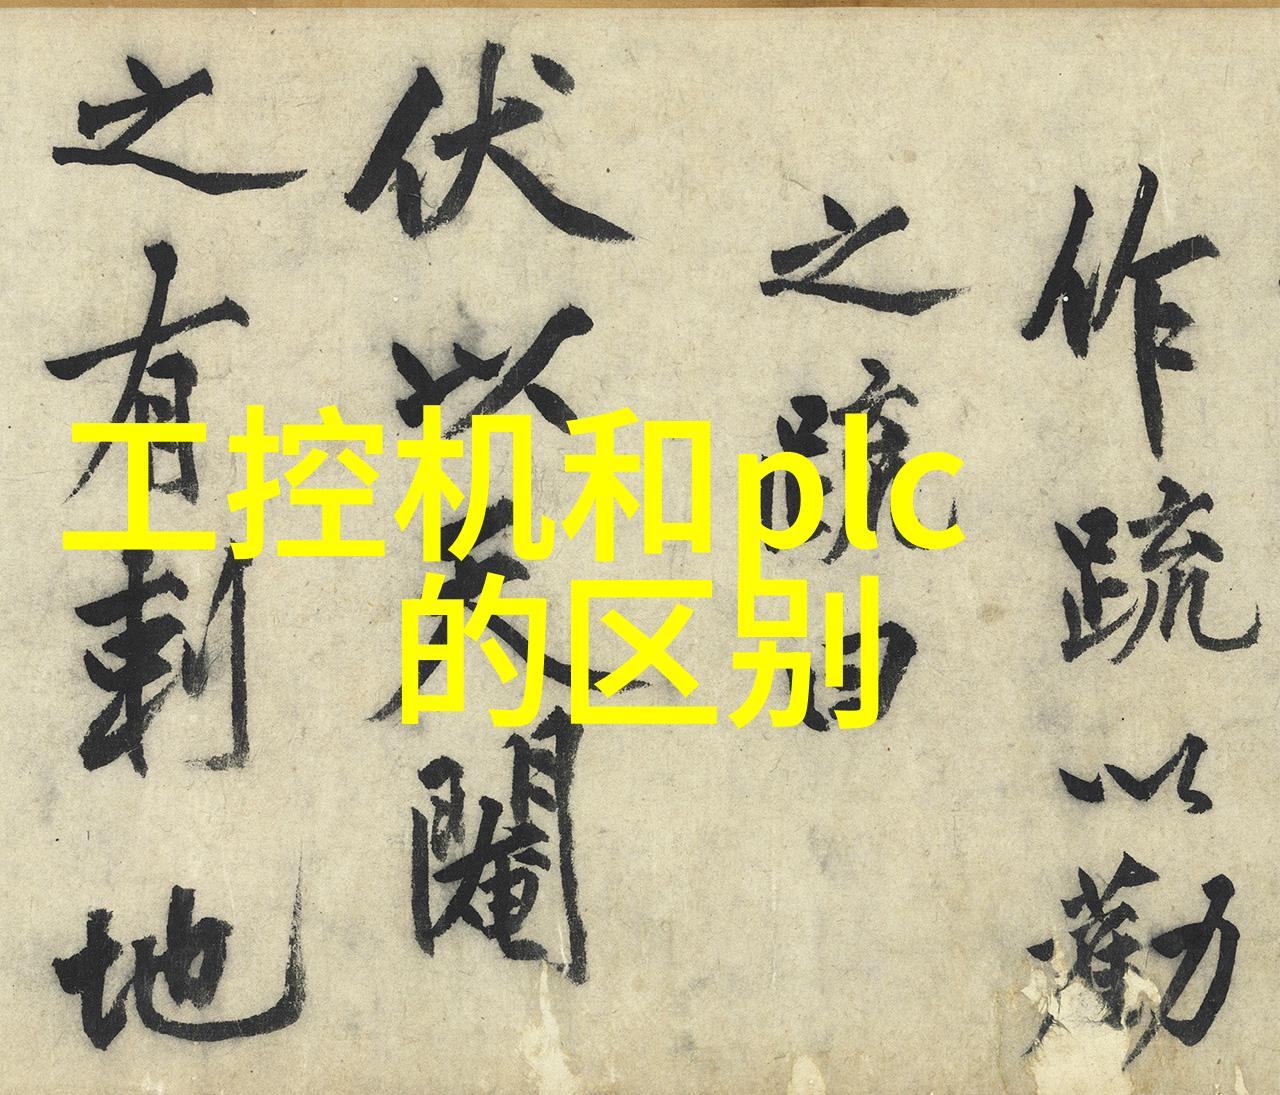 工控机和plc
的区别
作疏以勸
之疏曰
伏以天閹
之有刺地